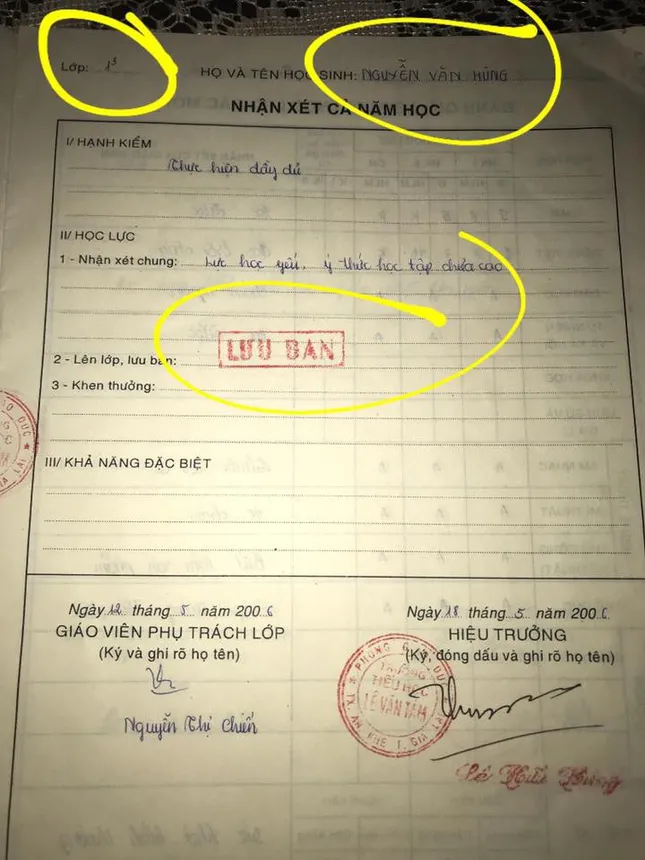 Lớp: 1³
HỌ VÀ TÊN HỌC SINH: NGUYỄN VĂN HÙNG
NHẬN XÉT CẢ NĂM HỌC
I/ HẠNH KIỂM
Thực hiện đầy đủ
II/ HỌC LỰC
1 - Nhận xét chung: Lực học yếu, ý thức học tập chưa cao
2 - Lên lớp, lưu ban: LƯU BAN
3 - Khen thưởng:
III/ KHẢ NĂNG ĐẶC BIỆT
Ngày 12 tháng 5 năm 2006
GIÁO VIÊN PHỤ TRÁCH LỚP
(Ký và ghi rõ họ tên)
Nguyễn Thị Chiến
Ngày 18 tháng 5 năm 2006
HIỆU TRƯỞNG
(Ký, đóng dấu và ghi rõ họ tên)
TRƯỜNG
TIỂU HỌC
LÊ VĂN TÁM
Lê Hữu Hưng